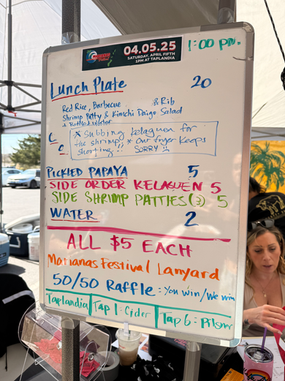 04.05.25
SATURDAY, APRIL FIFTH
1PM AT TAPLANDIA
1:00 pm.
Lunch Plate 20
Red Rice, Barbecue & Rib
Shrimp Patty & Kimchi Daigo Salad
* Subbing kelaguen for
the shrimp!! * Our fryer keeps
shorting!! SORRY
PICKLED PAPAYA 5
SIDE ORDER KELAGUEN 5
SIDE SHRIMP PATTIES (3) 5
WATER 2
ALL $5 EACH
Marianas Festival Lanyard
50/50 Raffle: You win/We win
Taplandia Tap 1: Cider Tap 6: Pilsner